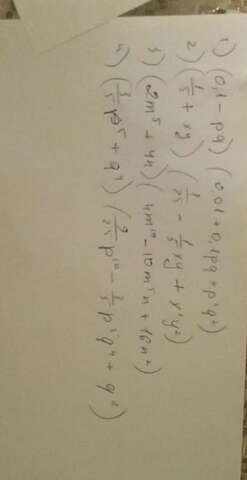 1) (0,1 - pq) (0,01 + 0,1pq + p²q²)
2) (1/5 + xy) (1/25 - 1/5 xy + x²y²)
3) (2m⁵ + 4n) (4m¹⁰ - 10m⁵n + 16n²)
4) (3/5 p⁵ + q⁴) (9/25 p¹⁰ - 3/5 p⁵q⁴ + q⁸)